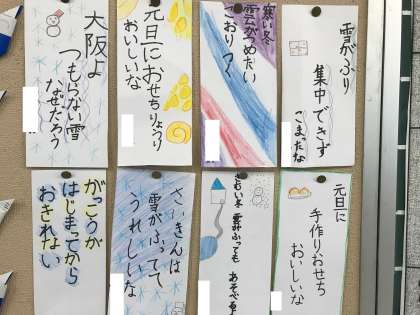 雪がふり
集中できず
こまったな
寒い冬
雲がつめたい
こおりつく
元旦におせちりょうり
おいしいな
大阪よ
つもらない雪
なぜだろう
元旦に
手作りおせち
おいしいな
さむい冬
雪がふっても
さいきんは
雪がふってて
うれしいな
がっこうが
はじまってから
おきれない